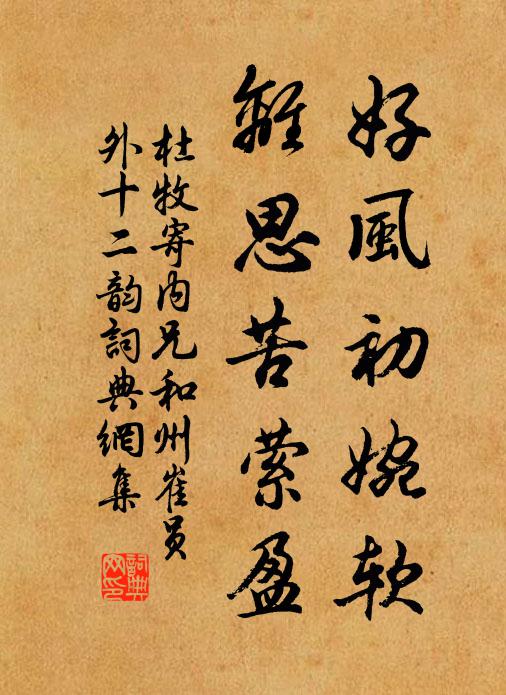 好風初婉軟
離思苦縈盈
杜牧寄內兄和州崔員
外十二韵詞典網集
詞典
网印